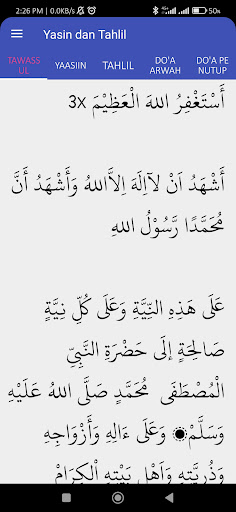 2:26 PM | 0.0KB/s
50
Yasin dan Tahlil
TAWASS
UL
YAASIIN
TAHLIL
DO'A
ARWAH
DO'A PE
NUTUP
أَسْتَغْفِرُ اللهَ الْعَظِيْمَ 3x
أَشْهَدُ اَنْ لآاِلَهَ اِلاَّاللهُ وَأَشْهَدُ أَنَّ
مُحَمَّدًا رَّسُوْلُ اللهِ
عَلَى هَذِهِ النِّيَّةِ وَعَلَى كُلِّ نِيَّةٍ
صَالِحَةٍ إِلَى حَضْرَةِ النَّبِيِّ
الْمُصْطَفَى مُحَمَّدٍ صَلَّى اللهُ عَلَيْهِ
وَسَلَّمَ وَعَلَى ءَالِهِ وَأَزْوَاجِهِ
وَذُرِّيَّتِهِ وَاَهْلِ بَيْتِهِ اْلكِرَامْ